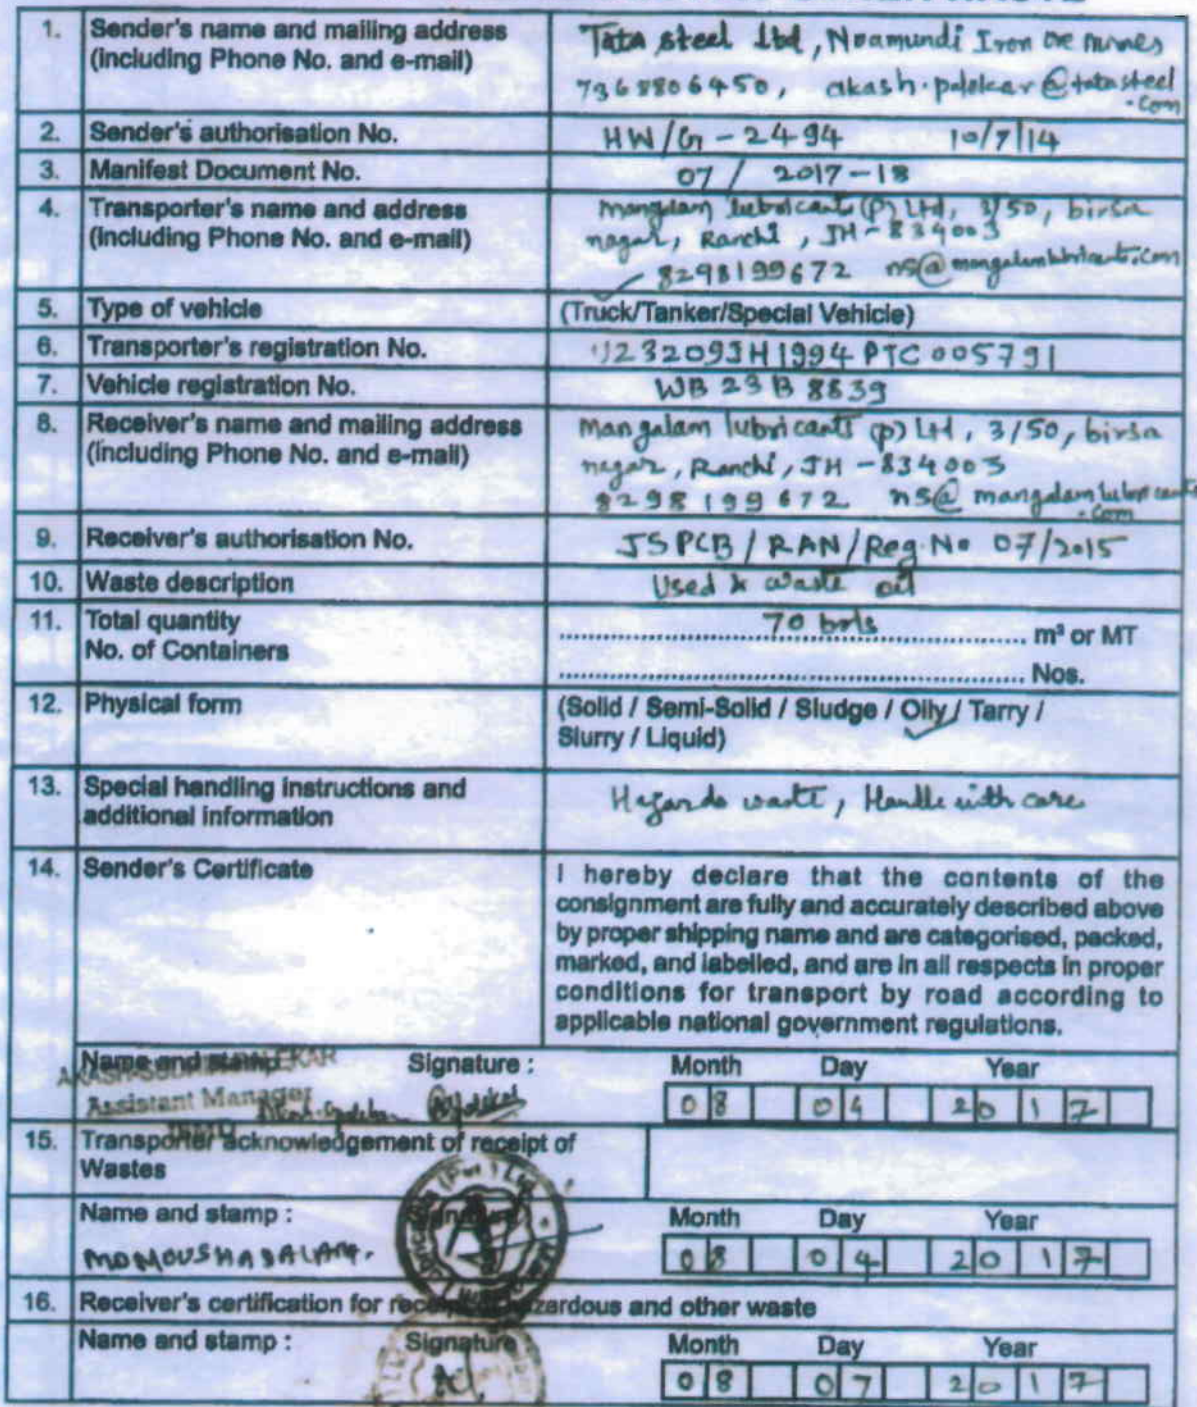 1. Sender's name and mailing address
(including Phone No. and e-mail)
Tata steel Ltd, Noamundi Iron ore mines
7368806450, akash.palekar@tatasteel
.com
2. Sender's authorisation No.
HW/G-2494 10/7/14
3. Manifest Document No.
07 / 2017-18
4. Transporter's name and address
(including Phone No. and e-mail)
Mangalam lubricants (p) Ltd, 3/50, birsa
nagar, Ranchi, JH-834003
8298199672 ns@mangalamlubricants.com
5. Type of vehicle
(Truck/Tanker/Special Vehicle)
6. Transporter's registration No.
U23209JH1994PTC005791
7. Vehicle registration No.
WB 23B 8839
8. Receiver's name and mailing address
(including Phone No. and e-mail)
Mangalam lubricants (p) Ltd, 3/50, birsa
nagar, Ranchi, JH-834003
8298199672 ns@mangalamlubricants
.com
9. Receiver's authorisation No.
JSPCB/RAN/Reg.No 07/2015
10. Waste description
Used & waste oil
11. Total quantity
No. of Containers
70 brls m³ or MT
Nos.
12. Physical form
(Solid / Semi-Solid / Sludge / Oily / Tarry /
Slurry / Liquid)
13. Special handling instructions and
additional information
waste, Handle with care
14. Sender's Certificate
I hereby declare that the contents of the
consignment are fully and accurately described above
by proper shipping name and are categorised, packed,
marked, and labelled, and are in all respects in proper
conditions for transport by road according to
applicable national government regulations.
Name and stamp: Signature : Month Day Year
Assistant Manager
08 04 2017
15. Transporter acknowledgement of receipt of
Wastes
Name and stamp : Signature Month Day Year
08 04 2017
16. Receiver's certification for receipt of hazardous and other waste
Name and stamp : Signature Month Day Year
08 07 2017